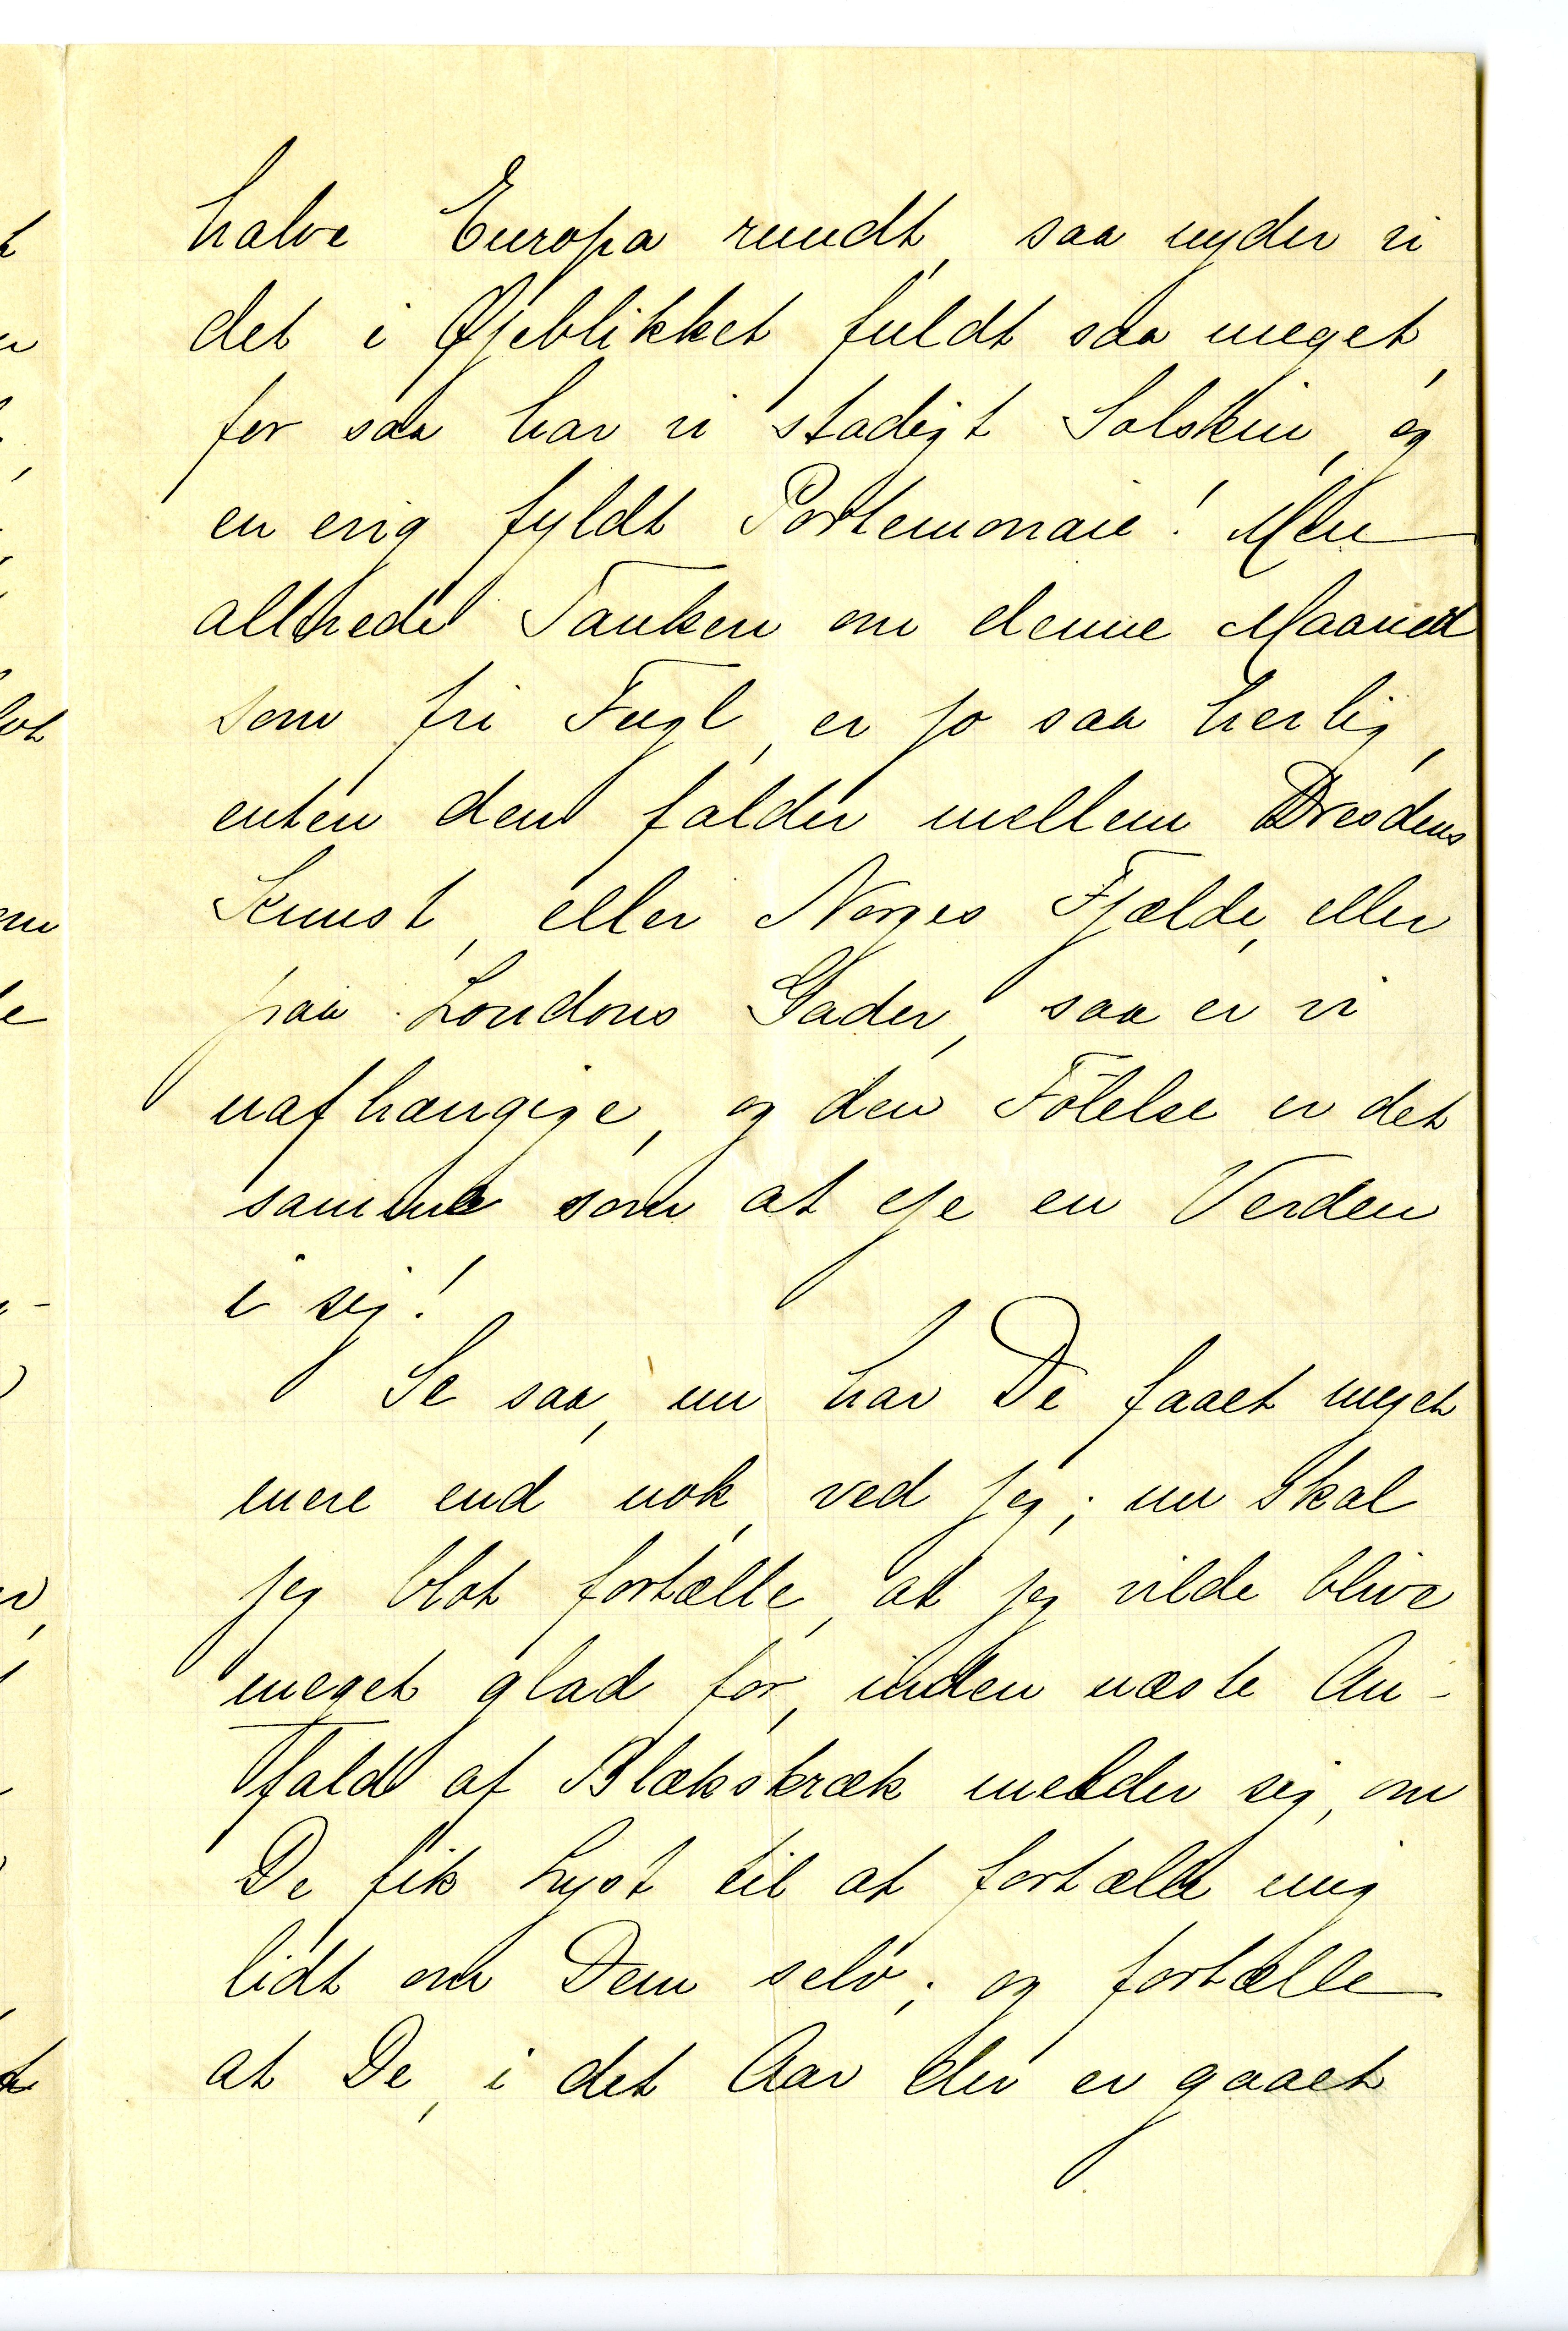 halve Europa rundt, saa nyder vi
det i Øjeblikket fuldt saa meget,
for saa har vi stadigt Solskin, og
en evig fyldt Portemonaie! Men
allerede Tanken om denne Maaned
som fri Fugl, er jo saa herlig,
enten den falder mellem Dresdens
Kunst, eller Norges Fjælde, eller
paa Londons Gader, saa er vi
uafhængige, og den Følelse er det
samme som at eje en Verden
i sig!
Se saa, nu har De faaet meget
mere end nok, ved jeg; nu skal
jeg blot fortælle, at jeg vilde blive
meget glad for, inden næste An-
fald af Blækskræk melder sig, om
De fik Lyst til at fortælle mig
lidt om Dem selv; og fortælle
at De, i det Aar der er gaaet